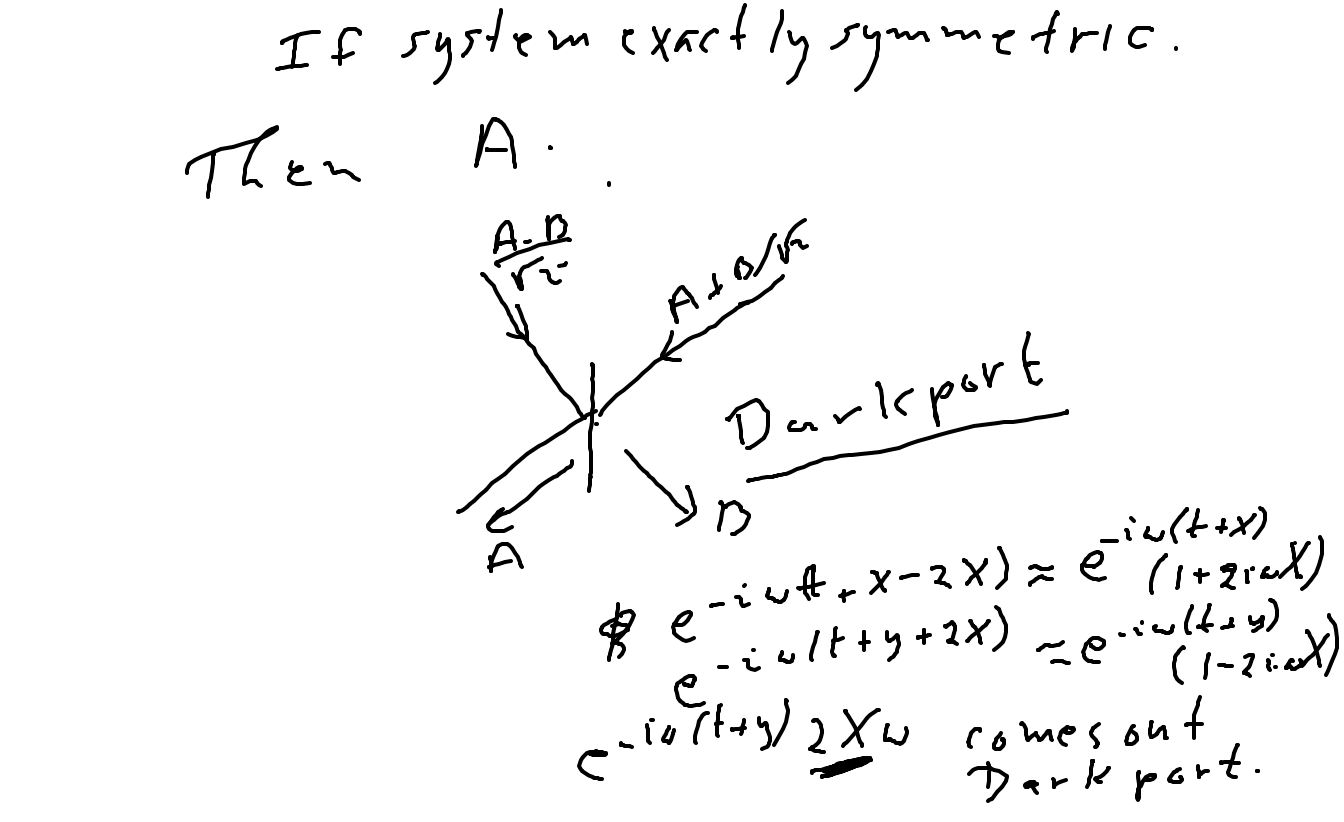 If system exactly symmetric.
Then A.
A-B
√2
A+B/√2
Dark port
A
B
e^{-iωt+x-2X)} ≈ e^{-iω(t+x)} (1+2iωX)
e^{-iω(t+y+2X)} ≈ e^{-iω(t+y)} (1-2iωX)
e^{-iω(t+y)} 2Xω comes out
Dark port.